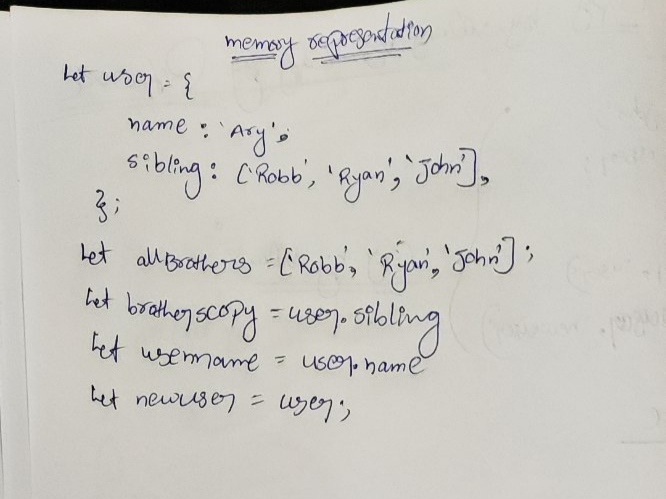 memory representation
Let user = {
name : 'Ary',
sibling : ['Robb', 'Ryan', 'John'],
};
Let allBrothers = ['Robb', 'Ryan', 'John'];
Let brotherscopy = user.sibling
Let username = user.name
Let newuser = user;